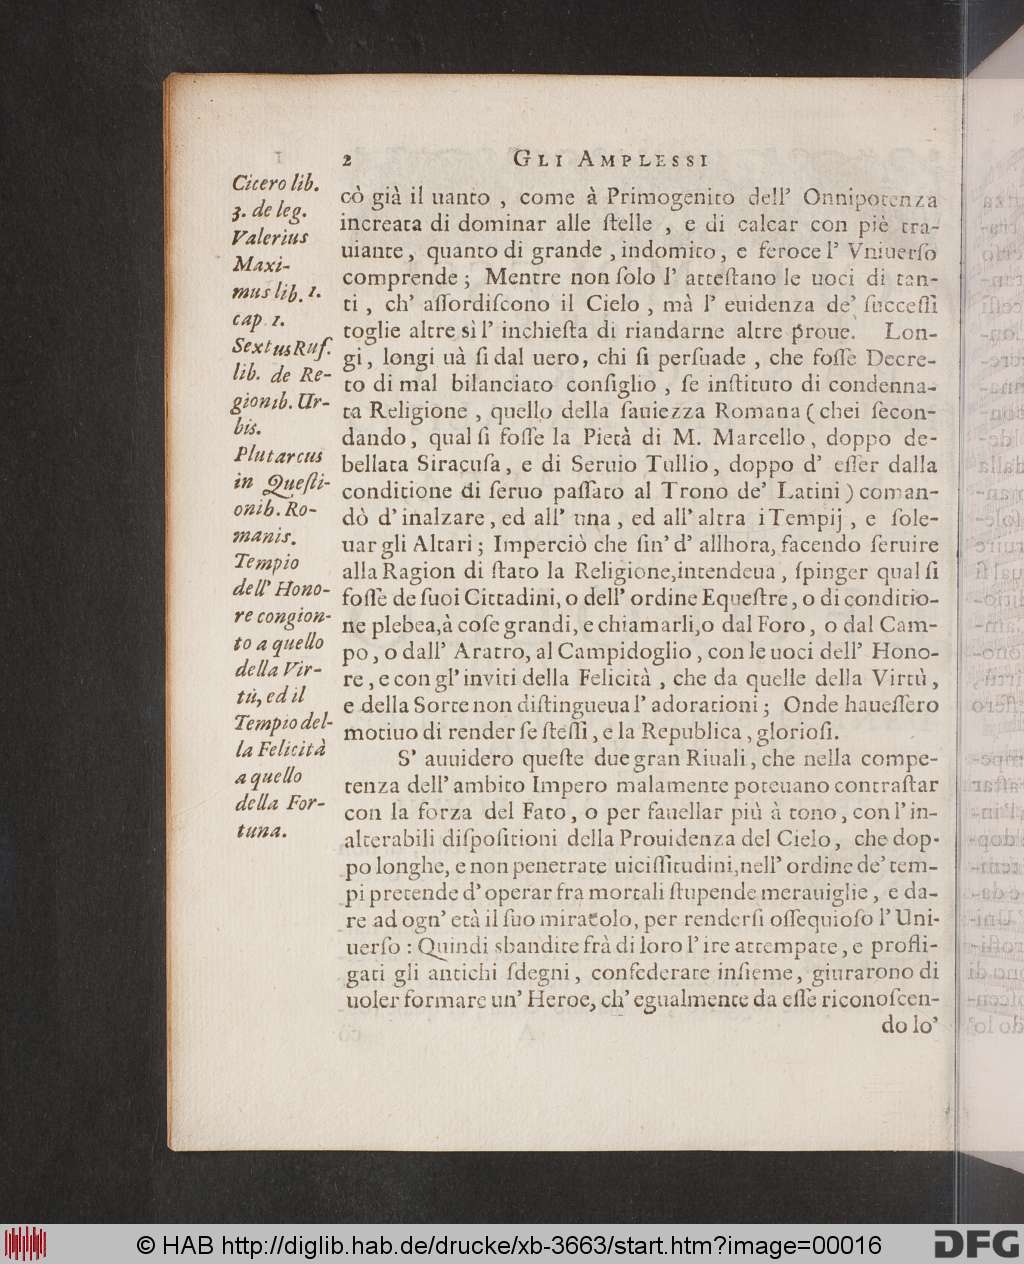 2 GLI AMPLESSI
Cicero lib.
3. de leg.
Valerius
Maxi-
mus lib. 1.
cap. 1.
Sextus Ruf.
lib. de Re-
gionib. Ur-
bis.
Plutarcus
in Queſti-
onib. Ro-
manis.
Tempio
dell' Hono-
re congion-
to a quello
della Vir-
tù, ed il
Tempio del-
la Felicità
a quello
della For-
tuna.
cò già il uanto , come à Primogenito dell' Onnipotenza
increata di dominar alle ſtelle , e di calcar con piè tra-
uiante, quanto di grande , indomito, e feroce l' Vniuerſo
comprende ; Mentre non ſolo l' atteſtano le uoci di tan-
ti , ch' aſſordiſcono il Cielo , mà l' euidenza de' ſucceſſi
toglie altre sì l' inchieſta di riandarne altre proue. Lon-
gi, longi uà ſi dal uero, chi ſi perſuade , che foſſe Decre-
to di mal bilanciato conſiglio , ſe inſtituto di condenna-
ta Religione , quello della ſauiezza Romana ( chei ſecon-
dando, qual ſi foſſe la Pietà di M. Marcello, doppo de-
bellata Siracuſa, e di Seruio Tullio, doppo d' eſſer dalla
conditione di ſeruo paſſato al Trono de' Latini ) coman-
dò d' inalzare, ed all' una , ed all' altra i Tempij , e ſole-
uar gli Altari ; Imperciò che ſin' d' allhora, facendo ſeruire
alla Ragion di ſtato la Religione,intendeua , ſpinger qual ſi
foſſe de ſuoi Cittadini, o dell' ordine Equeſtre, o di conditio-
ne plebea,à coſe grandi, e chiamarli,o dal Foro, o dal Cam-
po, o dall' Aratro, al Campidoglio , con le uoci dell' Hono-
re , e con gl' inviti della Felicità , che da quelle della Virtù,
e della Sorte non diſtingueua l' adorationi ; Onde haueſſero
motiuo di render ſe ſteſſi, e la Republica, glorioſi.
S' auuidero queſte due gran Riuali, che nella compe-
tenza dell' ambito Impero malamente poteuano contraſtar
con la forza del Fato, o per fauellar più à tono, con l' in-
alterabili diſpoſitioni della Prouidenza del Cielo, che dop-
po longhe, e non penetrate uiciſſitudini,nell' ordine de' tem-
pi pretende d' operar fra mortali ſtupende merauiglie, e da-
re ad ogn' età il ſuo miracolo, per renderſi oſſequioſo l' Uni-
uerſo : Quindi sbandite frà di loro l' ire attempate, e profli-
gati gli antichi ſdegni , confederate inſieme, giurarono di
uoler formare un' Heroe, ch' egualmente da eſſe riconoſcen-
do lo'
© HAB http://diglib.hab.de/drucke/xb-3663/start.htm?image=00016
DFG